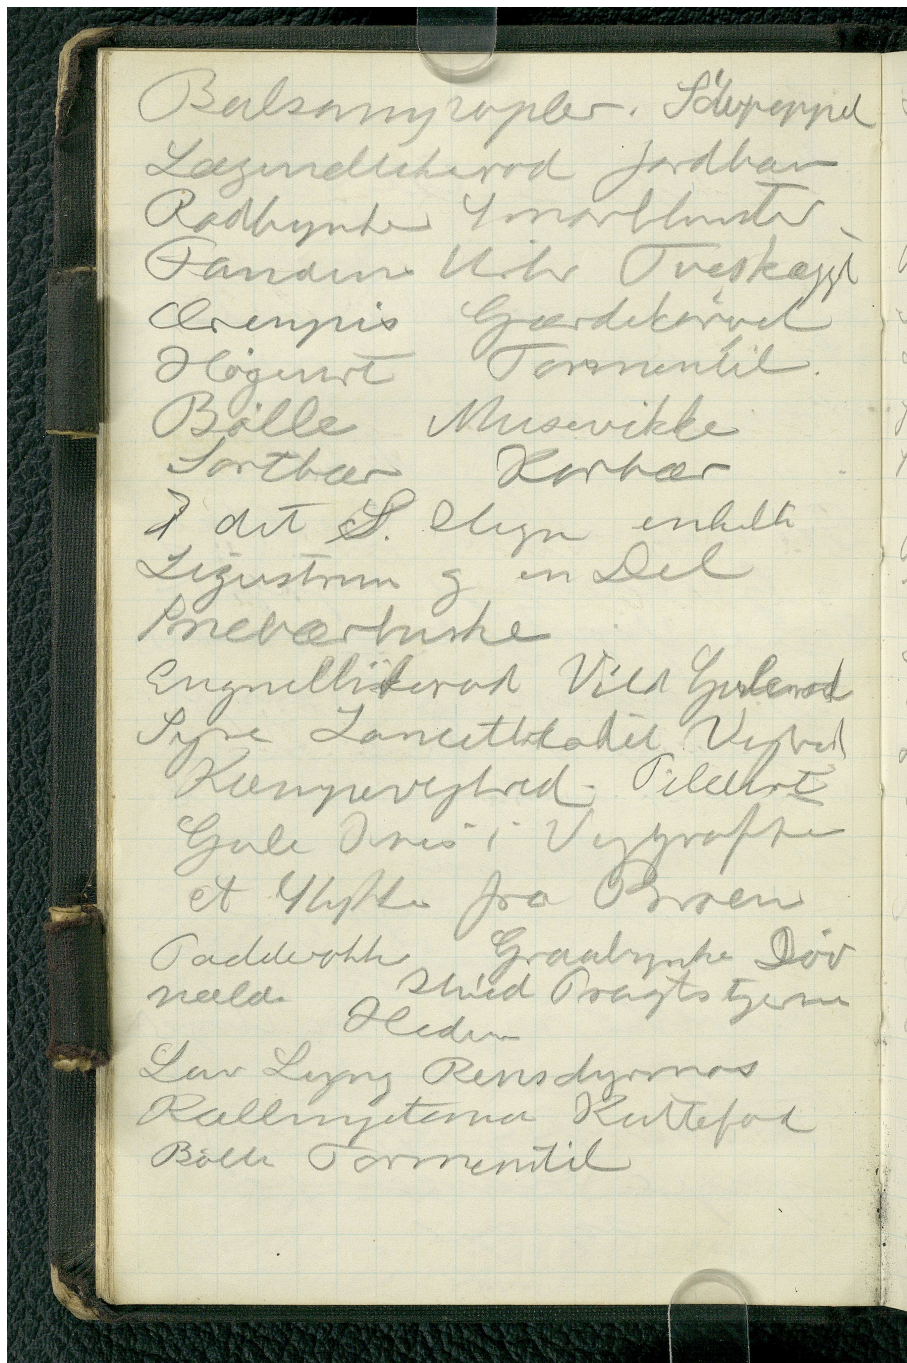 Balsampopler. Sølvpoppel
Lægenellikerod Jordbær
Rødbynke Smørblomster
Fandens Urter Tveskægget
Ærenpris Gærdekørvel
Høgeurt Tormentil.
Bølle Musevikke
Sortbær Korbær
I det S. Hegn enkelte
Ligustrum og en Del
Enebærbuske
Engnellikerod Vild Gulerod
Syre Lancetbladet Vejbred
Kæmpevejbred. Pileurt
Gule Iris i Vejgrøfte
et Stykke fra Broen
Padderokke Graabynke Døv
nælde Pragtstjerne
Heden
Lav Lyng Rensdyrmos
Rællingetema Kattefod
Bølle Tormentil